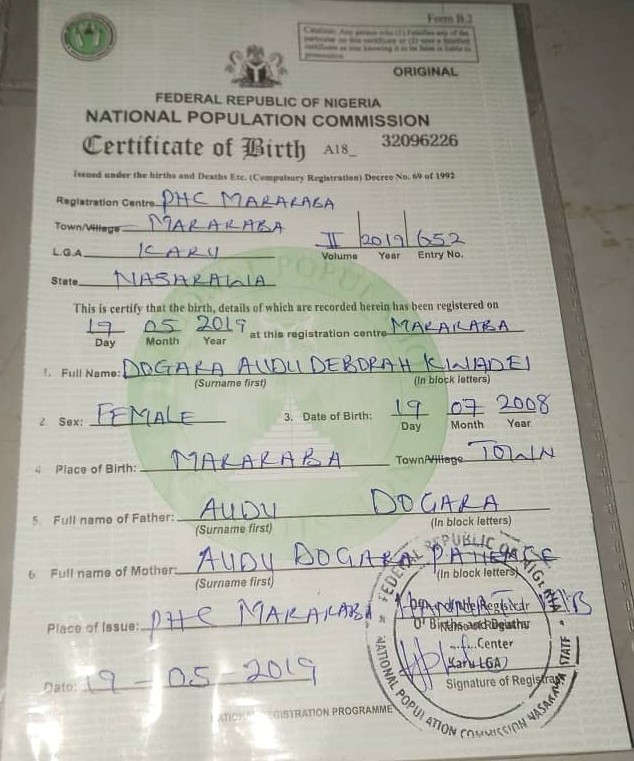 Form B.2
Caution: Any person who (1) Falsifies any of the
particular on this certificate or (2) uses a falsified
certificate as true knowing it to be false is liable to
prosecution
ORIGINAL
FEDERAL REPUBLIC OF NIGERIA
NATIONAL POPULATION COMMISSION
Certificate of Birth A18_ 32096226
Issued under the births and Deaths Etc. (Compulsory Registration) Decree No. 69 of 1992
Registration Centre PHC MARARABA
Town/Village MARARABA
L.G.A. KARU II 2019 652
Volume Year Entry No.
State NASARAWA
This is certify that the birth, details of which are recorded herein has been registered on
19 05 2019 at this registration centre MARARABA
Day Month Year
1. Full Name: DOGARA AUDU DEBORAH KWADEI
(Surname first) (In block letters)
2 Sex: FEMALE 3. Date of Birth: 19 07 2008
Day Month Year
4 Place of Birth: MARARABA Town/Village TOWN
5. Full name of Father: AUDU DOGARA
(Surname first) (In block letters)
6 Full name of Mother: AUDU DOGARA PATIENCE
(Surname first) (In block letters)
Place of Issue: PHC MARARABA
Of Births and Deaths
Center
Karu LGA
Signature of Registrar
Date: 19 - 05 - 2019
NATIONAL REGISTRATION PROGRAMME
FEDERAL REPUBLIC OF NIGERIA
NATIONAL POPULATION COMMISSION NASARAWA STATE